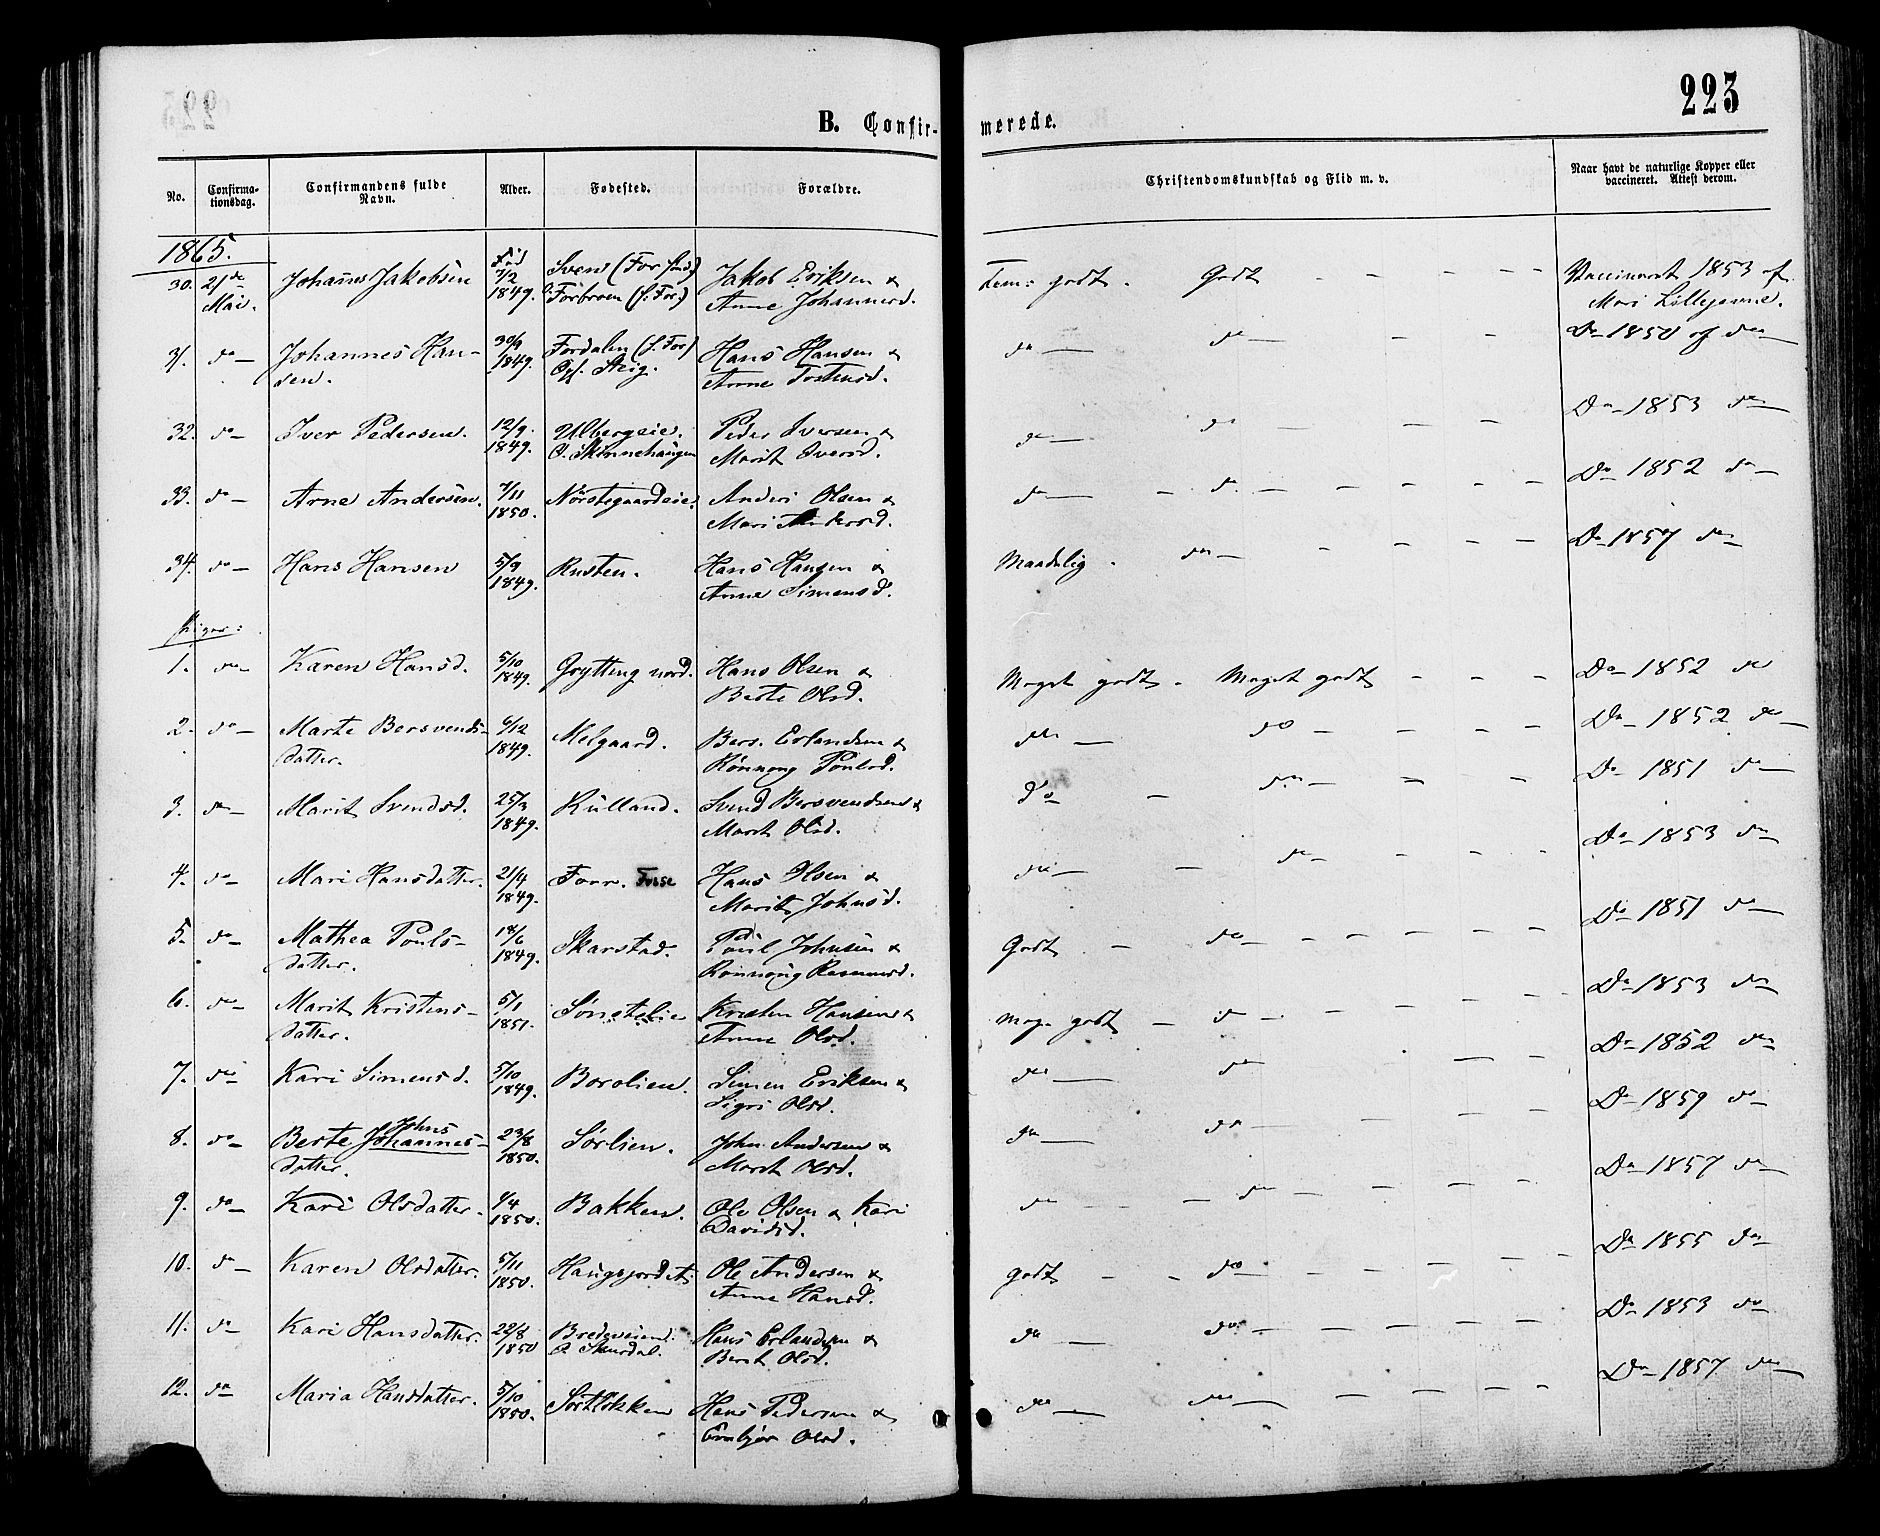 223
B. Confir- merede.
No. Confirma-tionsdag. Confirmandens fulde Navn. Alder. Fødested. Forældre. Christendomskundskab og Flid m. v. Naar havt de naturlige Kopper eller vaccineret. Attest derom.
1865.
30. 21de Mai. Johannes Jakobsen Fød 7/2 1849. Jakob Eriksen & Anne Johannesd. Tem: godt. Godt - - - - - Vaccineret 1853 af Mari Lillejevne.
31. do — Johannes Hansen. 30/9 1849. Fordalen (S. For) Opf. Steig. Hans Hansen & Anne Tostensd. do — do — - - Do 1850 af do —
32. do — Iver Pedersen. 12/9 1849. Ulbergeie. O. Skinnehaugen Peder Iversen & Marit Iversd. do — do — — Do — 1853 do —
33. do — Arne Andersen. 7/11 1850. Nörstegaardeie. Anders Olsen & Mari Andersd. do — - do. — - - - - Do 1852 do —
34. do — Hans Hansen 5/9 1849. Rusten. Hans Hansen & Anne Simensd. Maadelig. do — - - - - Do 1857 do —
Piger:
1. do — Karen Hansd. 5/10 1849. Grytting nord. Hans Olsen & Berte Olsd. Meget godt. Meget godt - - - Do — 1852 do
2. do — Marte Bersvends-datter. 6/12 1849. Melgaard. Bers. Erlandsen & Rönnoug Poulsd. do — do - - - - Do — 1852 do —
3. do — Marit Svendsd. 25/3 1849. Kulland. Svend Bersvendsen & Marit Olsd. do — do — - - Do — 1851 do —
4. do — Mari Hansdatter. 21/4 1849. Forr. Fosse Hans Olsen & Marit Johnsd. do — - do — - - - - Do — 1853 do —
5. do — Mathea Pouls-datter. 18/6 1849. Skarstad. Poul Johnsen & Rönnoug Rasmusd. Godt - do — - - - - - - Do 1851 do —
6. do — Marit Kristens-datter. 5/1 1851. Sönstelie Kristen Hansen & Anne Olsd. Meg. godt — do — - - - - Do — 1853 do —
7. do — Kari Simensd. 5/10 1849. Borolien. Simen Eriksen & Sigri Olsd. do — do — - — - Do — 1852 do —
8. do — Berte Johannes-datter. Johns 23/8 1850. Sörlien. John Andersen & Marit Olsd. do — do — - - - - Do — 1859 do —
9. do — Kari Olsdatter. 1/4 1850. Bakken. Ole Olsen & Kari Davidsd. do — do — - - - - Do — 1857 do —
10. do — Karen Olsdatter. 5/11 1850. Haugsjordet. Ole Andersen & Anne Hansd. godt - - do — - - - - - Do — 1855 do —
11. do — Kari Hansdatter. 22/8 1850 Hans Erlandsen & Berit Olsd. do — do. — - - - - - Do — 1853 do —
12. do Maria Hansdatter. 5/10 1850. Sörtlökken Hans Pedersen & Embjör Olsd. do — do — - - - - Do — 1857 do —